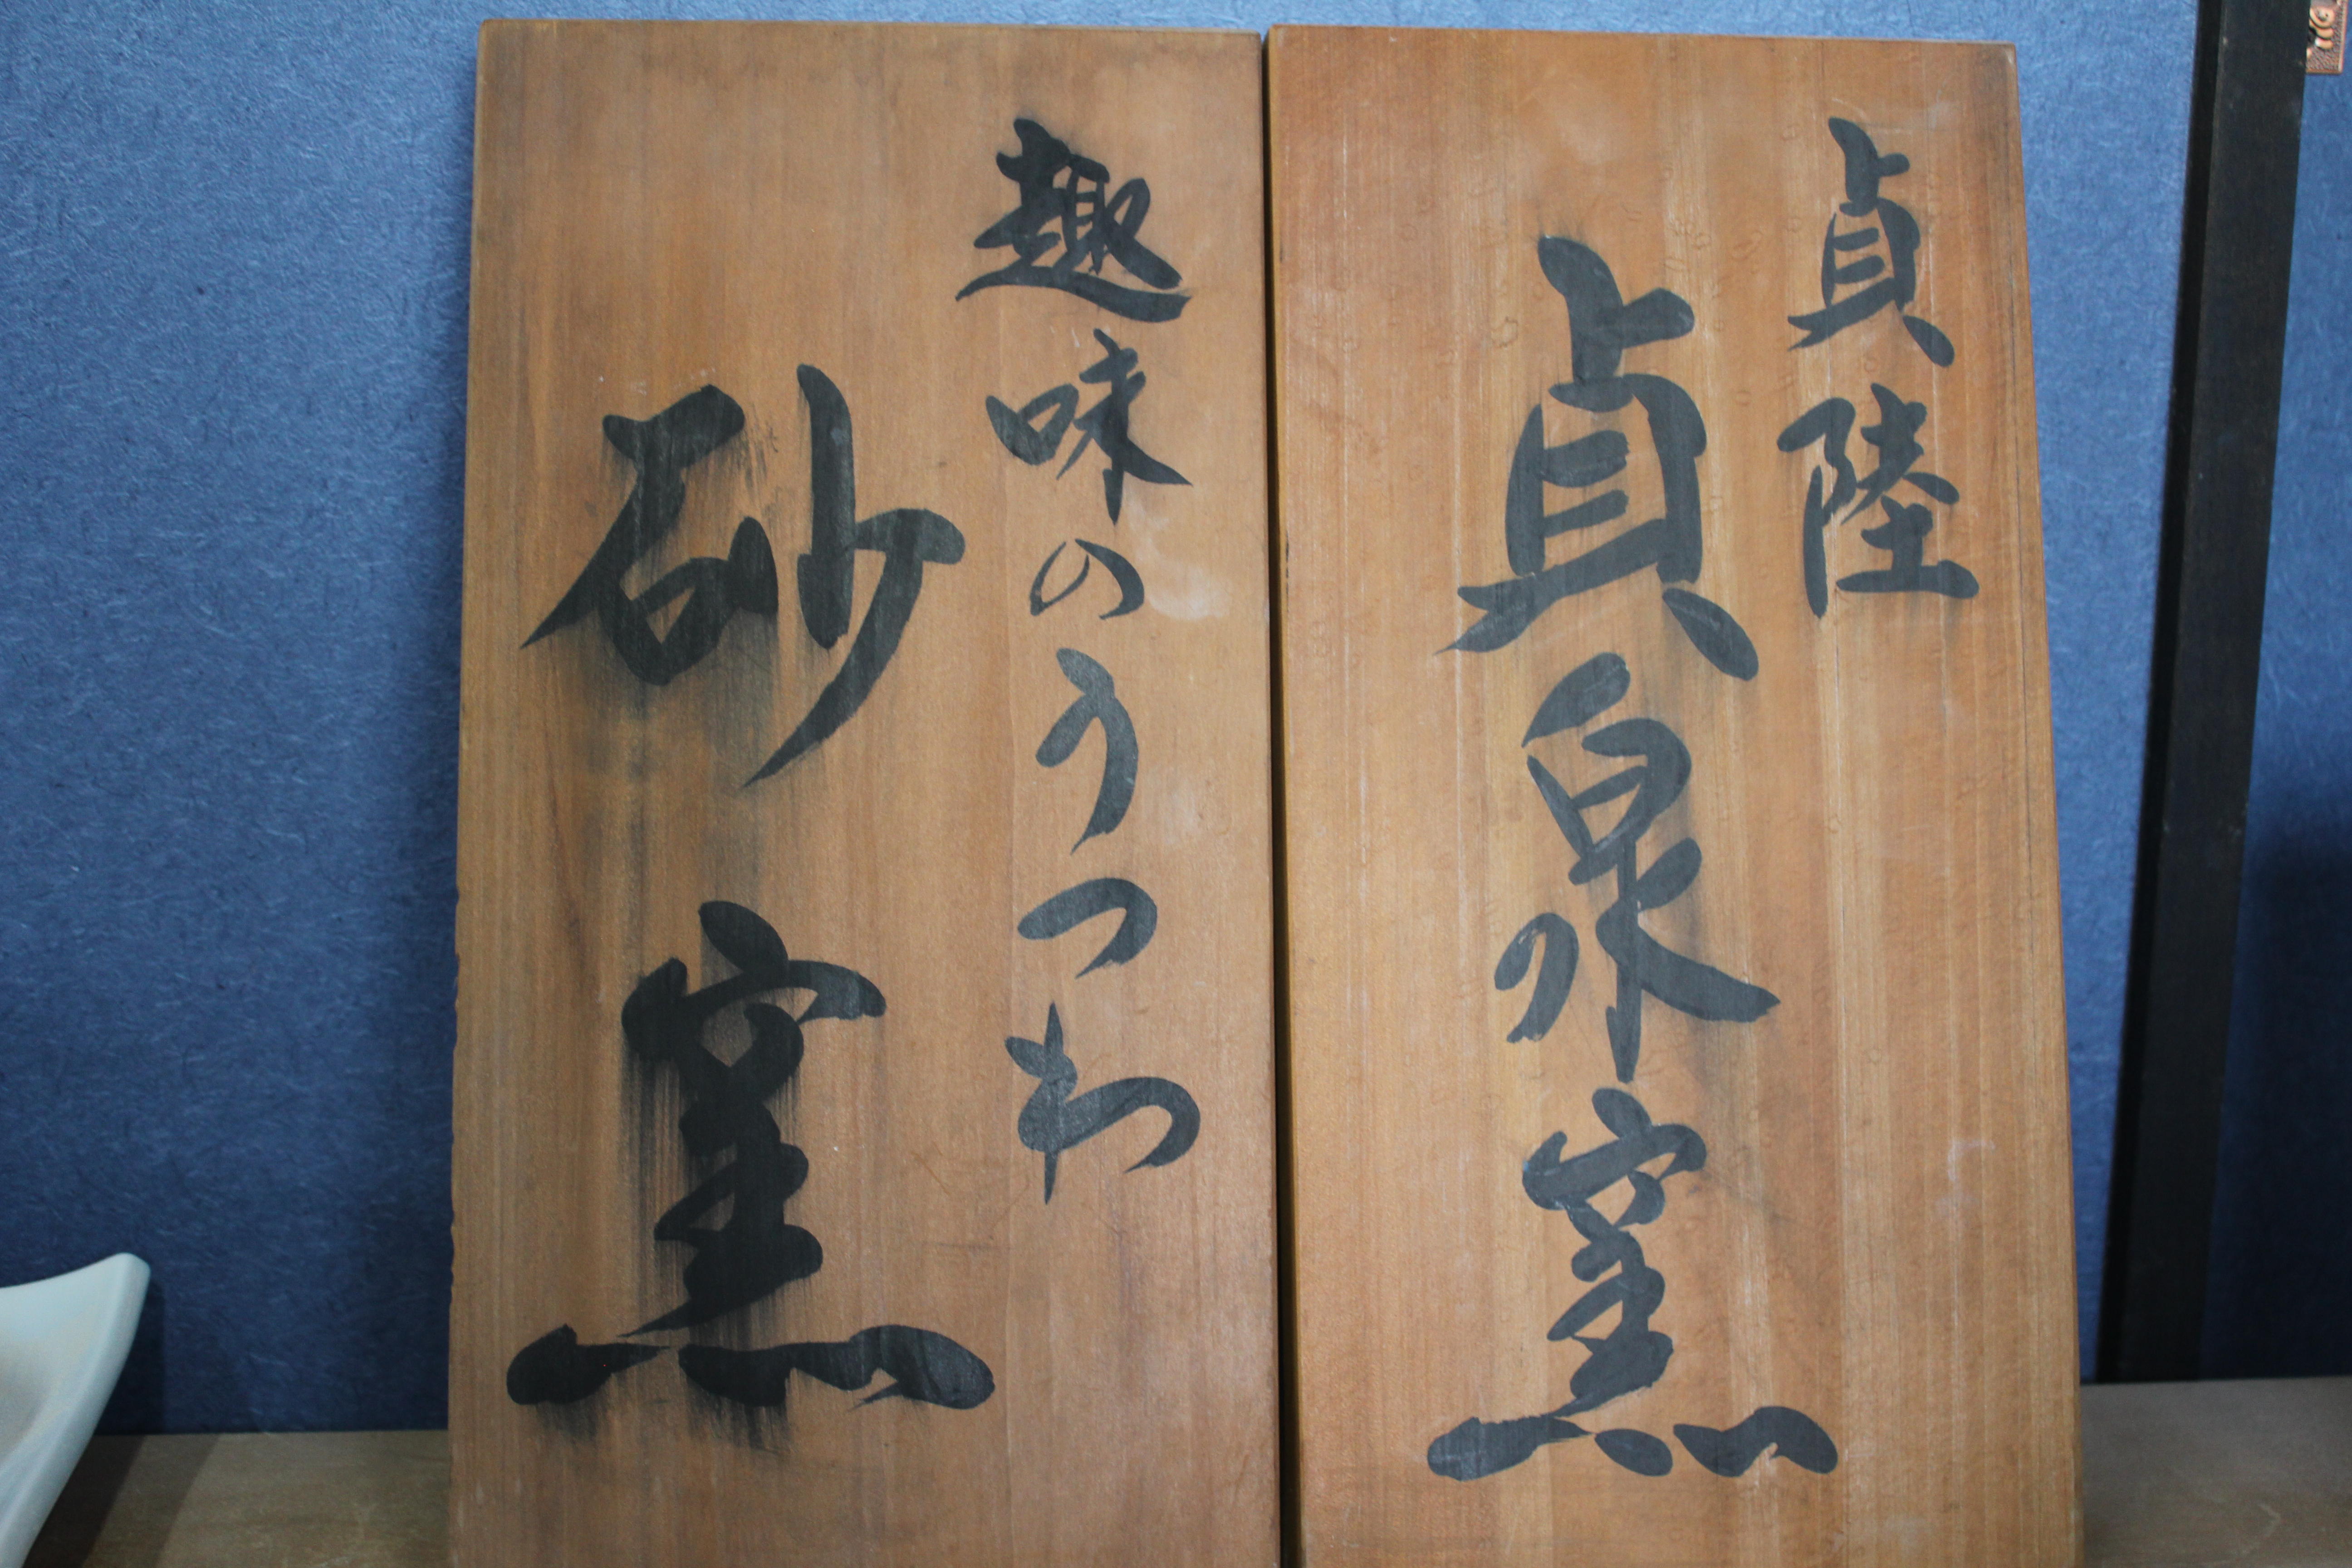 貞陸
貞泉窯
趣味のうつわ
砂窯